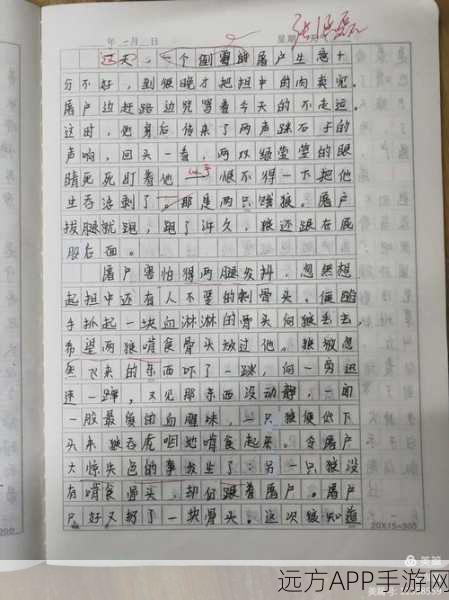 年 月 日 星期
这天，一个倒霉的屠户生意十
分不好，到很晚才把担中的肉卖完。
屠户边赶路边咒骂着今天的不走运。
这时，他身后传来了两声踩石子的
声响，回头一看，两双绿莹莹的眼
睛死死盯着他 恨不得一下把他
生吞活剥了。那是两只饿狼。屠户
拔腿就跑，跑了许久，狼还跟在屁
股后面。
屠户害怕得两腿发抖，忽然想
起担中还有人不要的剩骨头，便随
手抓起一块血淋淋的骨头向狼丢去，
希望两狼啃食骨头放过他。狼被忽
然飞来的东西吓了一跳，向一旁迅
速一蹿，又见那东西没动静，一闻
一股最爱的血腥味，一只狼便低下
头来狼吞虎咽地啃食起来。令屠户
大惊失色的事发生了：另一只狼没
有啃食骨头，却仍跟着屠户。屠户
只好又扔了一块骨头。这次狼知道
20X15=300
美篇
远方APP手游网